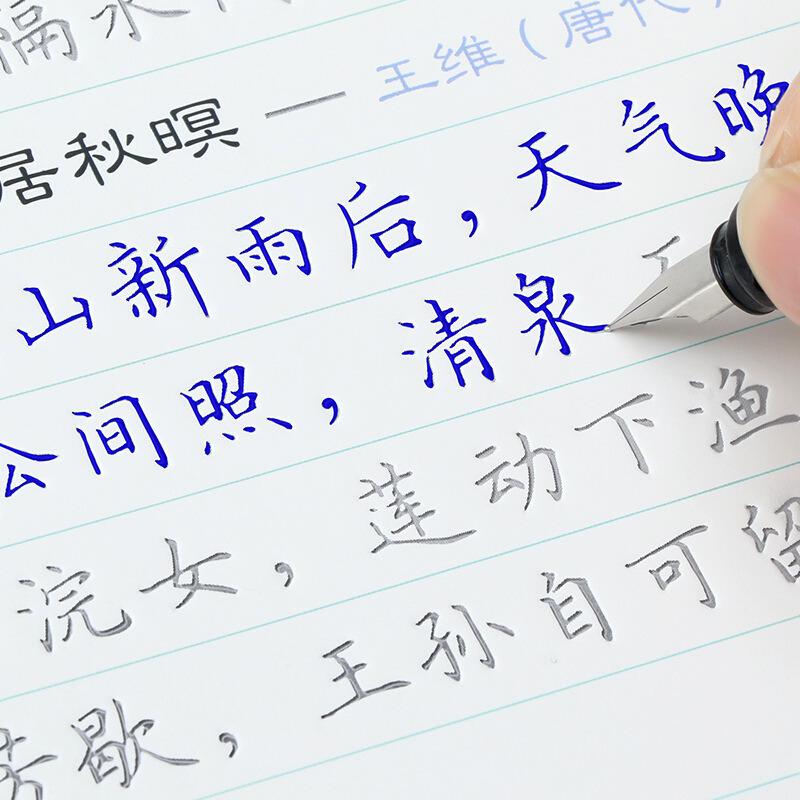 隔水
居秋暝 — 王维(唐代)
山新雨后,天气晚
间照,清泉
浣女,莲动下渔
歇,王孙自可留